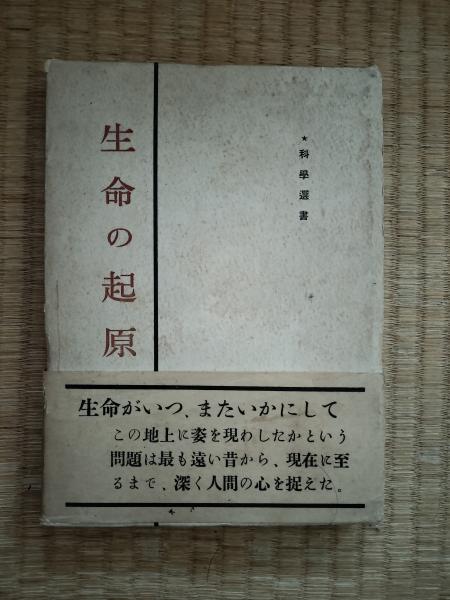 生命の起原
★科學選書
生命がいつ、またいかにして
この地上に姿を現わしたかという
問題は最も遠い昔から、現在に至
るまで、深く人間の心を捉えた。